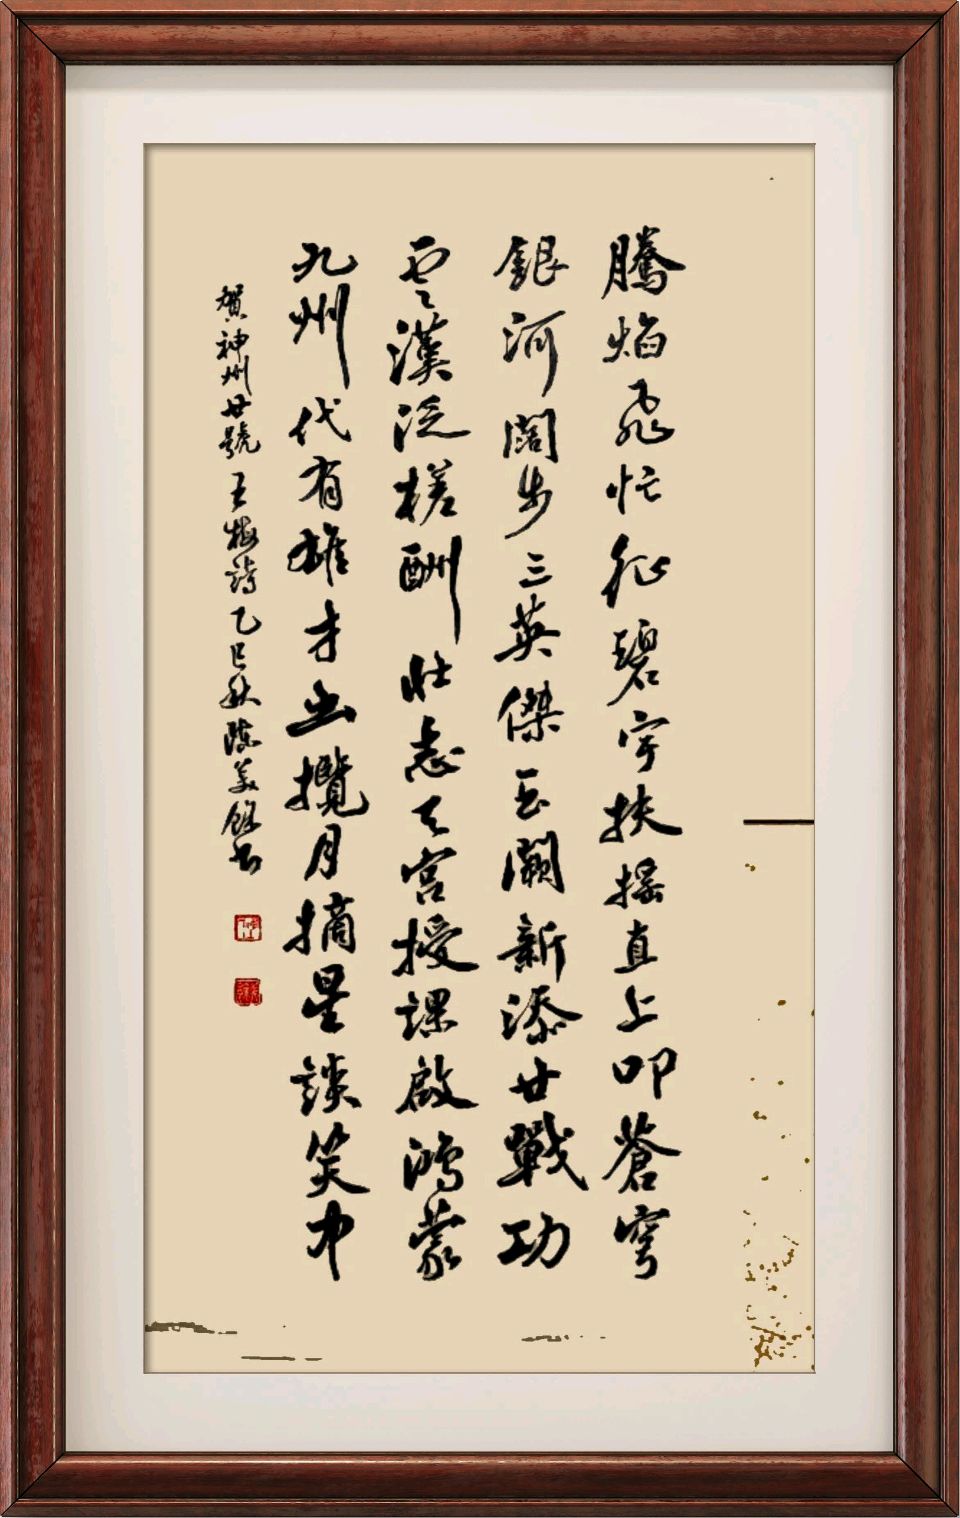 騰焰飛忙征碧宇扶搖直上叩蒼穹
銀河闊步三英傑玉闕新添廿戰功
雲漢泛槎酬壯志天宮授課啟鴻蒙
九州代有雄才出攬月摘星談笑中
賀神州廿號王梅詩乙巳秋陳美錦書